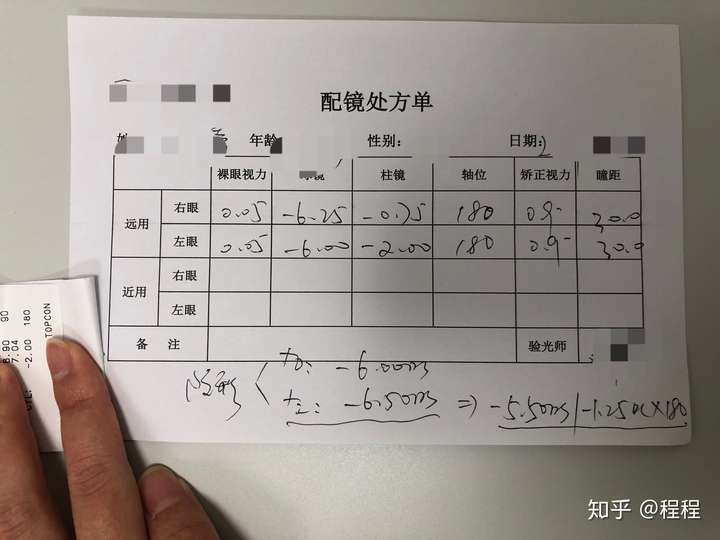 配镜处方单
年龄 性别: 日期:
裸眼视力 球镜 柱镜 轴位 矫正视力 瞳距
远用 右眼 0.05 -6.25 -0.75 180 0.9- 30.0
左眼 0.05 -6.00 -2.00 180 0.9- 30.0
近用 右眼
左眼
备 注 验光师
隐形 右: -6.00DS
左: -6.50DS => -5.50DS/-1.25DC×180
90
6.90 90
7.04
CYL: -2.00 180
TOPCON
知乎 @程程